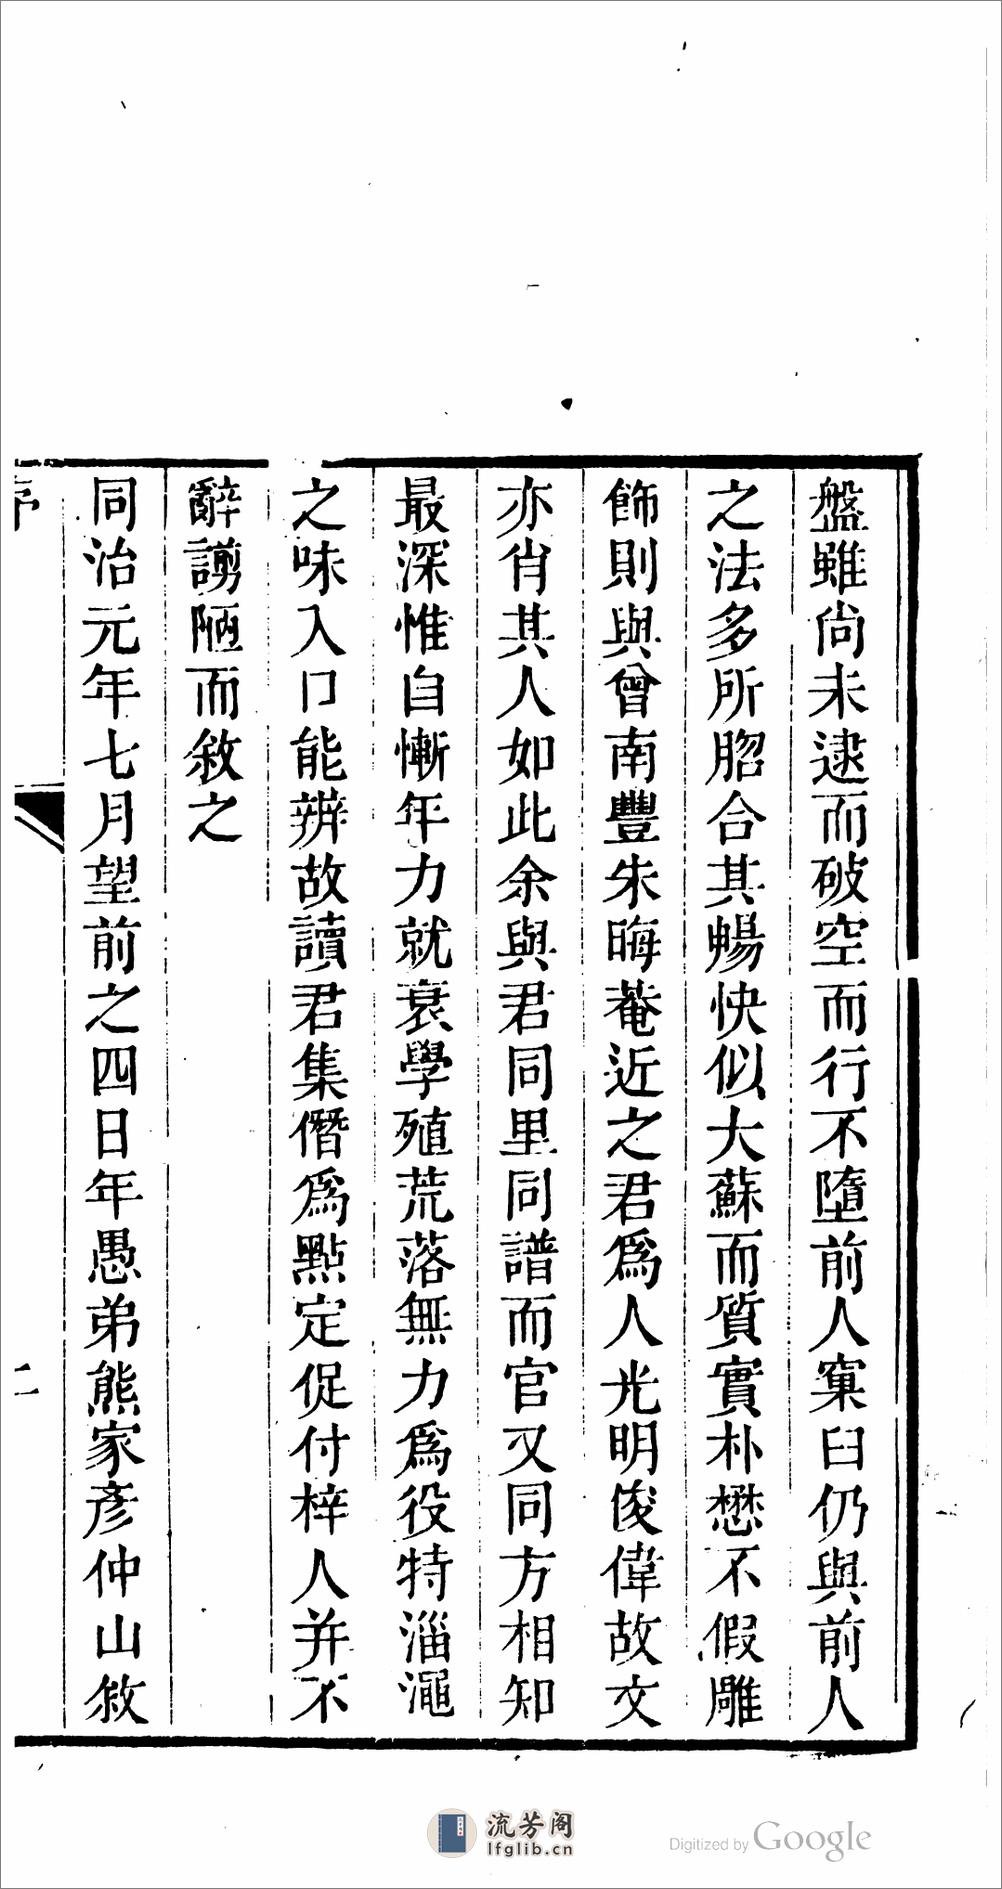 盤雖尚未逮而破空而行不墮前人窠臼仍與前人
之法多所脗合其暢快似大蘇而質實朴懋不假雕
飾則與曾南豐朱晦菴近之君爲人光明俊偉故文
亦肖其人如此余與君同里同譜而官又同方相知
最深惟自慚年力就衰學殖荒落無力爲役特淄澠
之味入口能辨故讀君集僭爲點定促付梓人并不
辭謭陋而敘之
同治元年七月望前之四日年愚弟熊家彥仲山敘
序
二
流芳阁
lfglib.cn
Digitized by Google